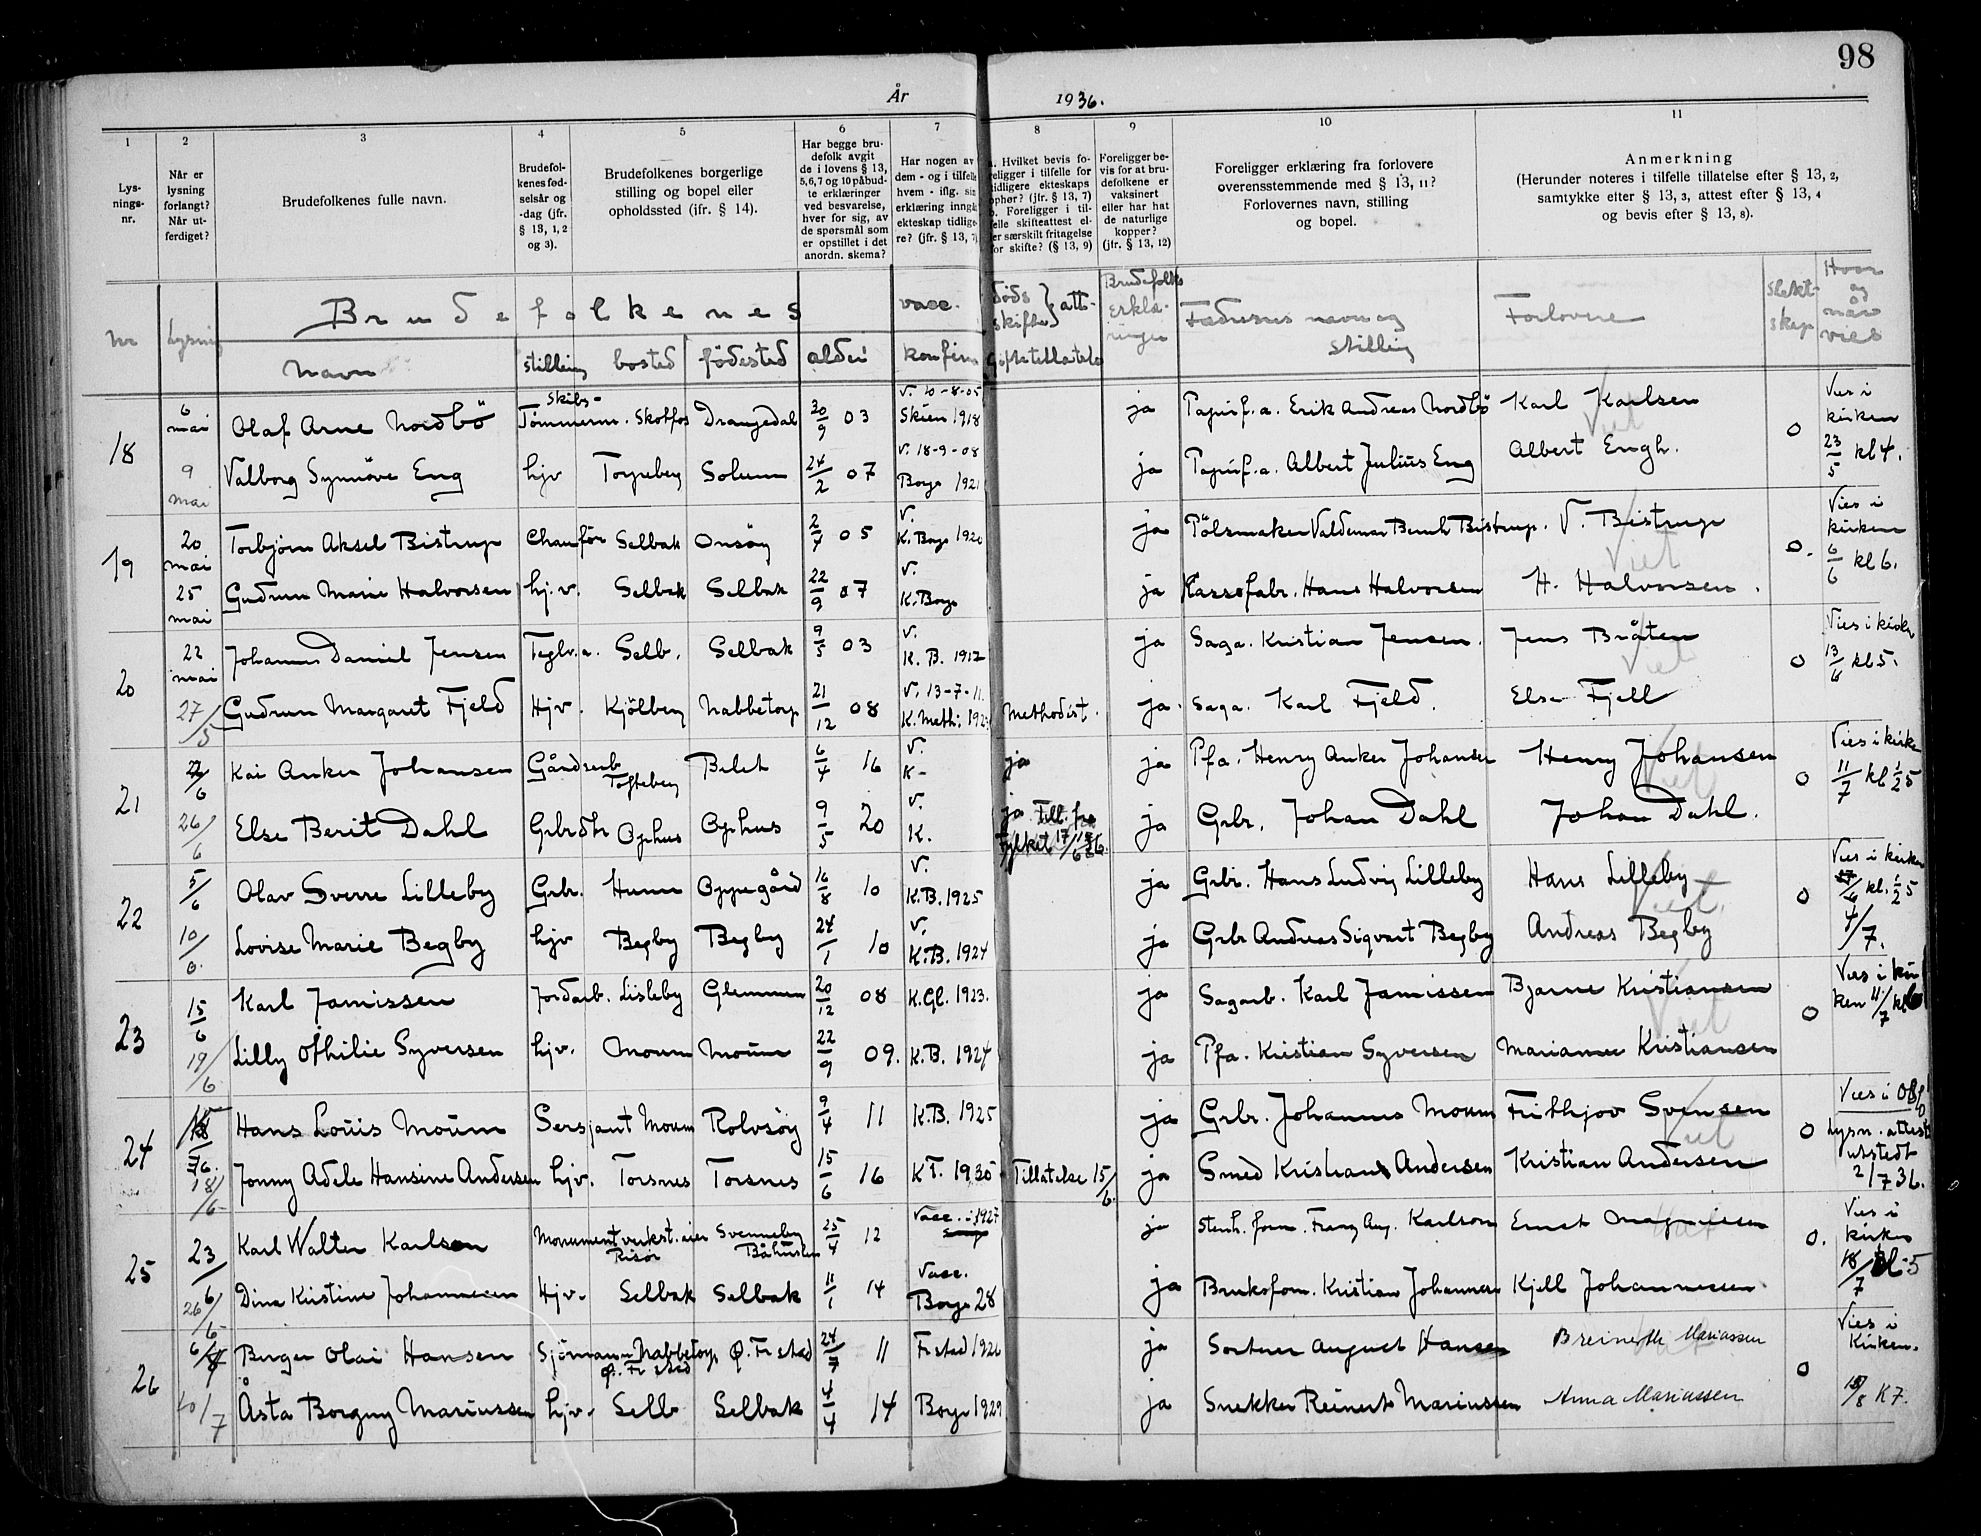 98
År 1936.
1 2 3 4 5 6 7 8 9 10 11
Lys-
nings-
nr.
Når er
lysning
forlangt?
Når ut-
ferdiget?
Brudefolkenes fulle navn.
Brudefol-
kenes fød-
selsår og
-dag (jfr.
§ 13, 1, 2
og 3).
Brudefolkenes borgerlige
stilling og bopel eller
opholdssted (ifr. § 14).
Har begge bru-
defolk avgit
de i lovens § 13,
5, 6, 7 og 10 påbud-
te erklæringer
ved besvarelse,
hver for sig, av
de spørsmål som
er opstillet i det
anordn. skema?
Har nogen av
dem - og i tilfelle
hvem - iflg. sin
erklæring inngå
ekteskap tidlige-
re? (jfr. § 13, 7
a. Hvilket bevis fo-
religger i tilfelle for
tidligere ekteskaps
ophør? (jfr. § 13, 7)
b. Foreligger i til-
felle skifteattest el-
ler særskilt fritagelse
for skifte? (§ 13, 9)
Foreligger be-
vis for at bru-
defolkene er
vaksinert
eller har hat
de naturlige
kopper?
(jfr. § 13, 12)
Foreligger erklæring fra forlovere
overensstemmende med § 13, 11?
Forlovernes navn, stilling
og bopel.
Anmerkning
(Herunder noteres i tilfelle tillatelse efter § 13, 2,
samtykke efter § 13, 3, attest efter § 13, 4
og bevis efter § 13, 8).
Nr Lysning Brudefolkenes vacc. døds skifte } att- Brudefolks erklæ- ringer Fædrenes navn og stilling Forlovere Slekt- skap Hvor og når vies
navn stilling bosted födested alder konfirm Giftetillatelse
18 6 mai Olaf Arne Nordbö Skibs- Tömmerm. Skotfos Drangedal 20/9 03 V. 10-8-05 Skien 1918 ja Papirf.a. Erik Andreas Nordbö Karl Karlsen Viet 0 Vies i kirken 23/5 kl 4.
9 mai Valborg Synnöve Eng hjv Torpeberg Solum 24/2 07 V. 18-9-08 Borge 1921 ja Papirf.a. Albert Julius Eng Albert Engh.
19 20 mai Torbjörn Aksel Bistrup Chauför Selbak Onsöy 2/4 05 V. K. Borge 1920 ja Pölsmaker Valdemar Bernh Bistrup. V. Bistrup Viet 0. Vies i kirken 6/6 kl 6.
25 mai Gudrun Marie Halvorsen hj.v. Selbak Selbak 22/9 07 V. K. Borge ja Kassefabr. Hans Halvorsen H. Halvorsen.
20 22 mai Johannes Daniel Jensen Teglv.a. Selb. Selbak 9/5 03 V. K. B. 1917 ja Saga. Kristian Jensen. Jens Bråten Viet 0 Vies i kirken 13/6 kl 5.
27/5 Gudrun Margaret Fjeld Hjv. Kjölberg Nabbetorp 21/12 08 V. 13-7-11. K. Meth: 192 Methodist. ja. Saga. Karl Fjeld. Else Fjell
21 Kai Anker Johansen Gårdsarb Tofteberg Belet 6/4 16 V. K- ja ja Pfa. Henry Anker Johansen Henry Johansen Viet 0 Vies i kirke 11/7 kl 1/2 5
26/6 Else Berit Dahl Grbrdtr Ophus Ophus 9/5 20 V. K. ja Till. fra Fylket 17/6 36. ja Grbr. Johan Dahl Johan Dahl.
22 5/6 Olav Sverre Lilleby Grbr. Hunn Oppegård 16/8 10 V. K.B. 1925 ja Grbr. Hans Ludvig Lilleby Hans Lilleby Viet. 0 Vies i kirken kl. 1/2 5 4/7.
10/6. Lovise Marie Begby hjv Begby Begby 24/1 10 V. K.B. 1924 ja Grbr Andreas Sigvart Begby Andreas Begby
23 15/6 Karl Jamissen Jordarb. Lisleby Glemmen 20/12 08 K.Gl. 1923. ja Sagarb. Karl Jamissen Bjarne Kristiansen Viet 0 Vies i kirken 11/7 kl
19/6 Lilly Othilie Syversen hjv. Moum Moum 22/9 09. K.B. 1924 ja Pfa. Kristian Syversen Marianne Kristiansen
24 Hans Louis Moum Sersjant Moum Rolvsöy 9/4 11 K.B. 1925 ja Grbr. Johannes Moum Frithjov Svensen Viet 0 Vies i Oslo Lysn. attest utstedt 2/7 36.
18/6 Jonny Adele Hansine Andersen hjv. Torsnes Torsnes 15/6 16 K T. 1930 Tillatelse 15/6. ja Smed Kristian Andersen Kristian Andersen
25 23/6 Karl Walter Karlson Monumentverkst.eier Risör Svenneby Båhuslen 25/4 12 Vacc. 1927 ja Stenh. form. Franz Aug. Karlson Ernst Magnussen 0. Vies i kirken 18/7 kl. 5
26/6 Dina Kristine Johannesen Hjv. Selbak Selbak 11/1 14 Vacc. Borge 28 ja Bruksform. Kristian Johannesen Kjell Johannessen
26 6/7 Birger Olai Hansen Sjömann Nabbetorp Ø. Fr stad Ø. Fr stad 24/7 11 Fr stad 1926 ja Sorterer August Hansen Breinette Mariussen 0 Vies i Kirken.
10/7 Åsta Borgny Mariussen hjv. Selb Selbak 4/4 14 Borge 1929 ja Snekker Reinert Mariussen Anna Mariussen 15/8 K 7.